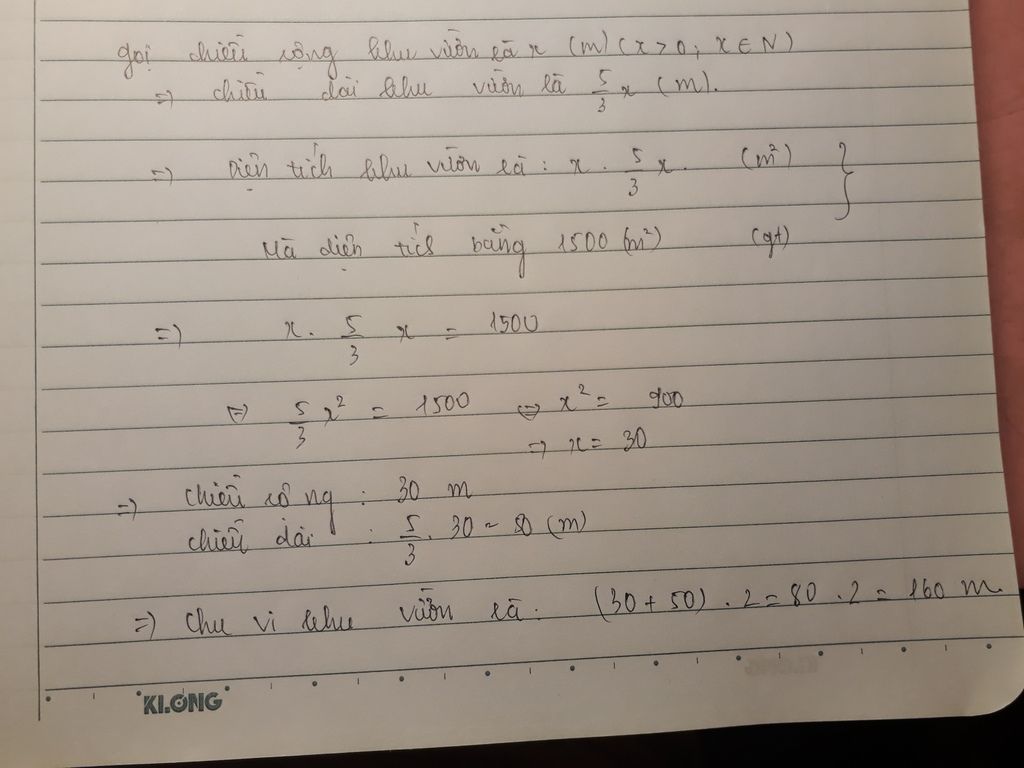 gọi chiều rộng khu vườn là x (m) (x > 0; x ∈ N)
=> chiều dài khu vườn là 5/3 x (m).
=> Diện tích khu vườn là : x . 5/3 x . (m²) }
Mà diện tích bằng 1500 (m²) (gt)
=> x . 5/3 x = 1500
<=> 5/3 x² = 1500 <=> x² = 900
=> x = 30
=> chiều rộng : 30 m
chiều dài : 5/3 . 30 = 50 (m)
=> Chu vi khu vườn là : (30 + 50) . 2 = 80 . 2 = 160 m.
KLONG